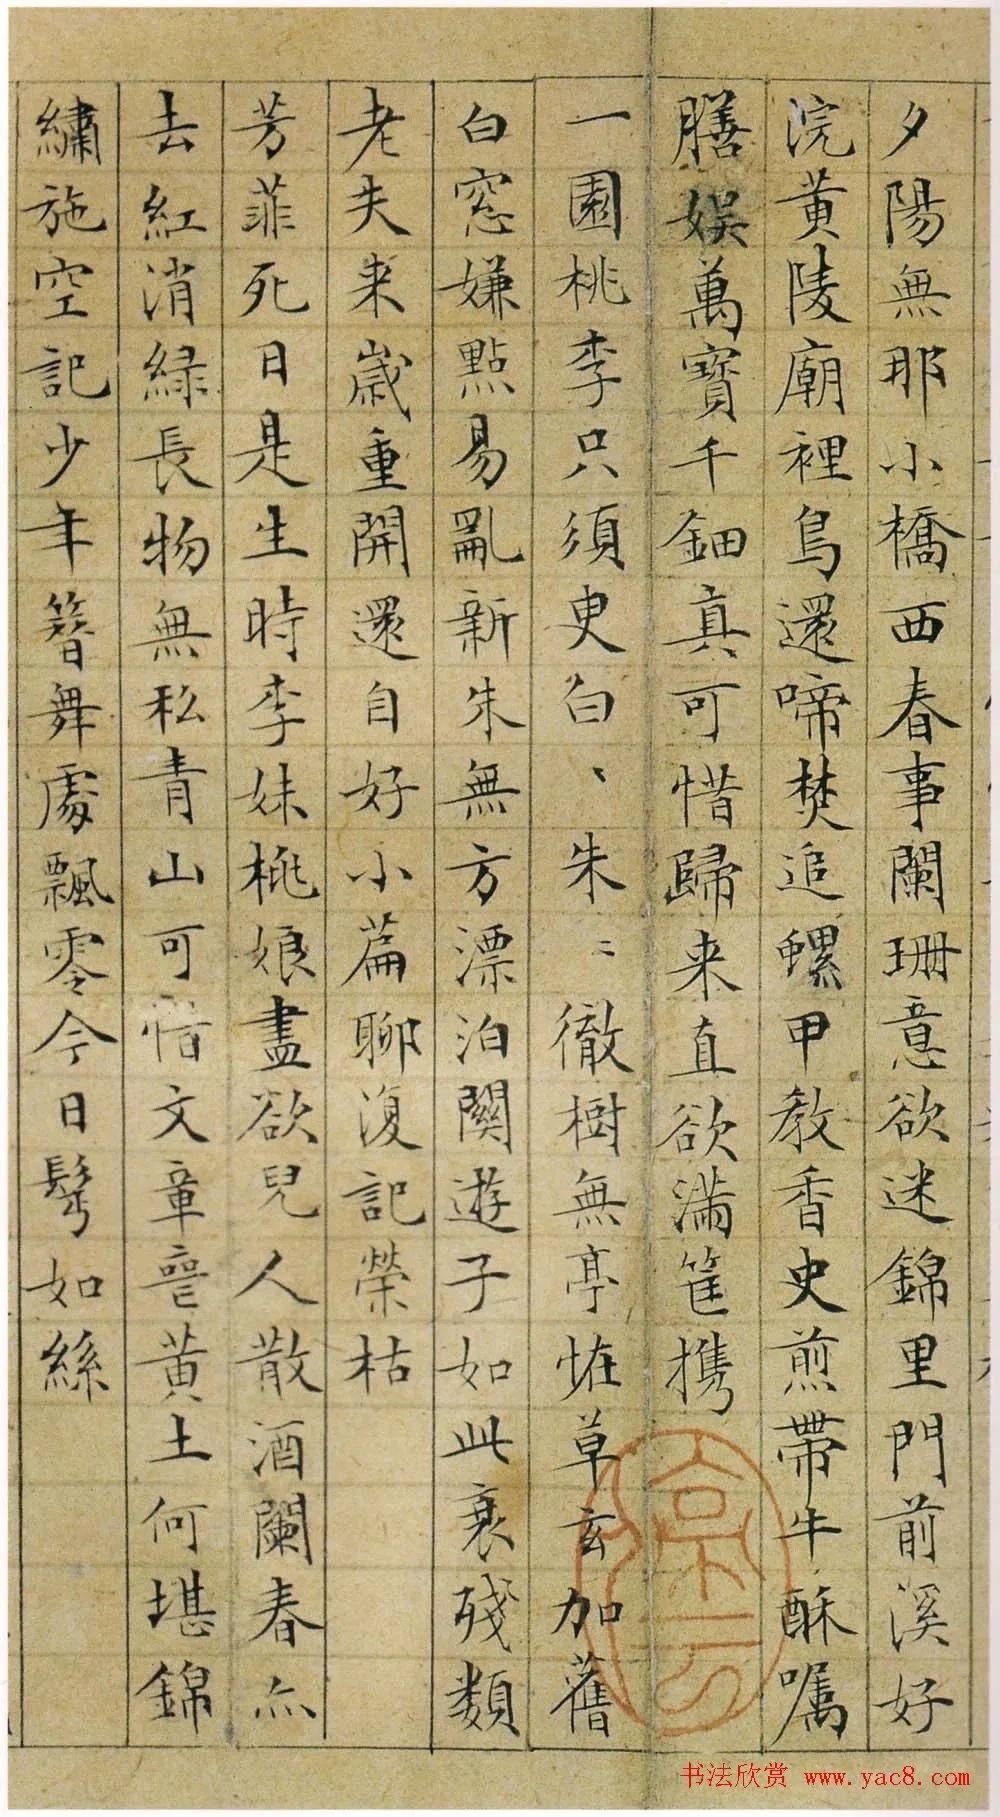 夕陽無那小橋西春事闌珊意欲迷錦里門前溪好
浣黃陵廟裡鳥還啼焚追螺甲教香史煎帶牛酥囑
膳娛萬寶千鈿真可惜歸来直欲滿筐携
一園桃李只須臾白、朱〻徹樹無亭恠草玄加舊
白窓嫌點易亂新朱無方漂泊關遊子如此衰殘類
老夫来歲重開還自好小篇聊復記榮枯
芳菲死日是生時李妹桃娘盡欲兒人散酒闌春亦
去紅消緑長物無私青山可惜文章䘮黃土何堪錦
繡施空記少年簪舞處飄零今日鬂如絲
书法欣赏 www.yac8.com